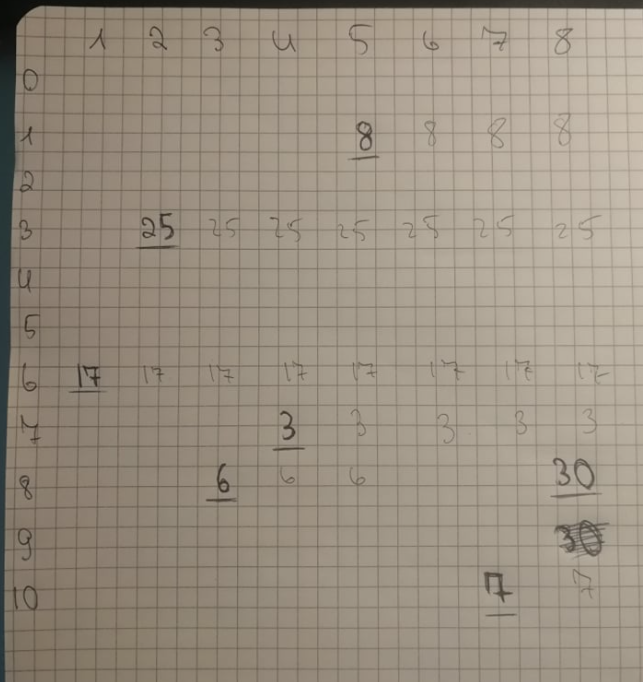 1 2 3 4 5 6 7 8
0
1 8 8 8 8
2
3 25 25 25 25 25 25 25
4
5
6 17 17 17 17 17 17 17 17
7 3 3 3 3 3
8 6 6 6 30
9 30
10 7 7